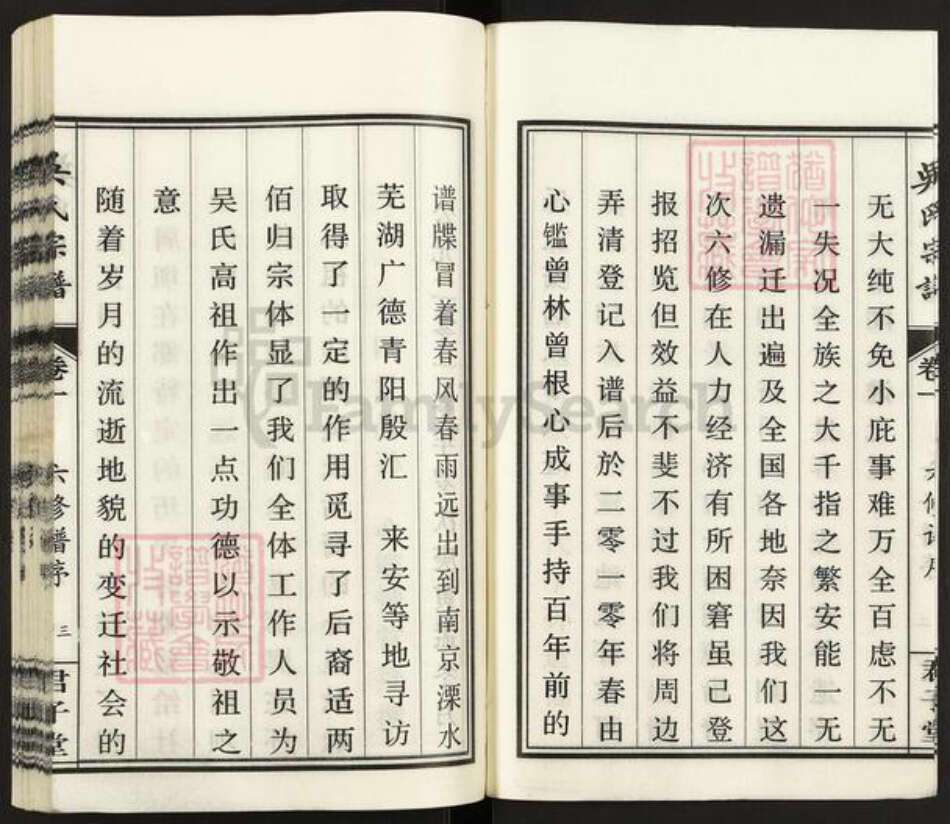 无大纯不免小庇事难万全百虑不无
一失况全族之大千指之繁安能一无
遗漏迁出遍及全国各地奈因我们这
次六修在人力经济有所困窘虽己登
报招览但效益不斐不过我们将周边
弄清登记入谱后於二零一零年春由
心鑑曾林曾根心成事手持百年前的
谱牒冒着春风春雨远出到南京溧水
芜湖广德青阳殷汇 来安等地寻访
取得了一定的作用觅寻了后裔适两
佰归宗体显了我们全体工作人员为
吴氏高祖作出一点功德以示敬祖之
意
随着岁月的流逝地貌的变迁社会的
吴氏宗谱 卷一 六修谱序 三 君子堂
FamilySearch